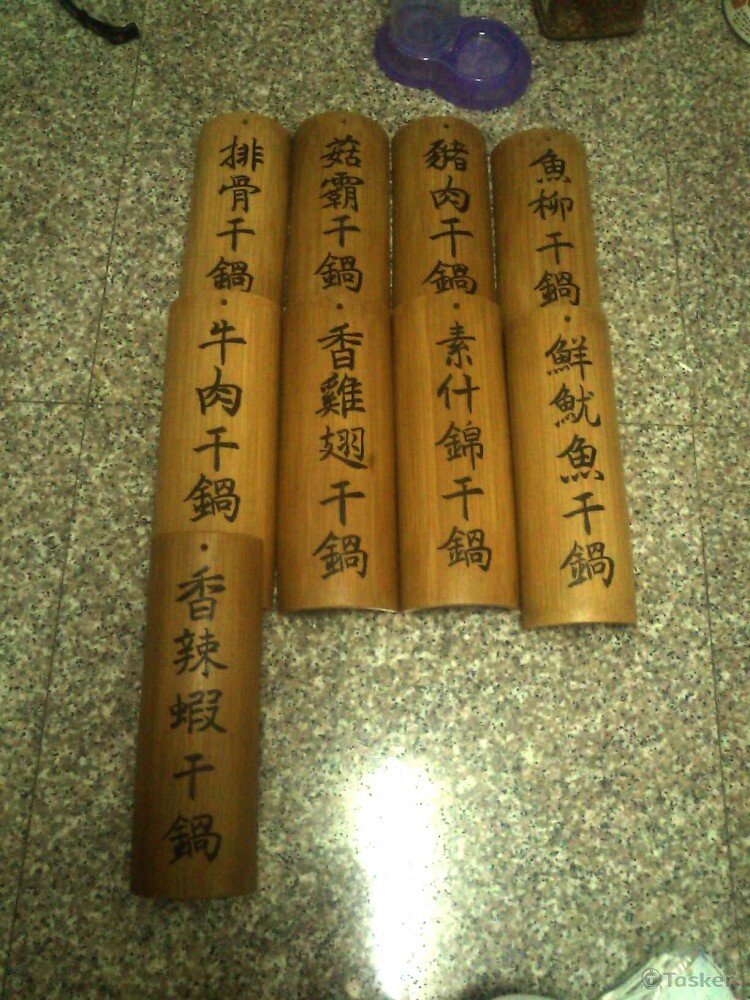 排骨干鍋
菇霸干鍋
豬肉干鍋
魚柳干鍋
牛肉干鍋
香雞翅干鍋
素什錦干鍋
鮮魷魚干鍋
香辣蝦干鍋
Tasker